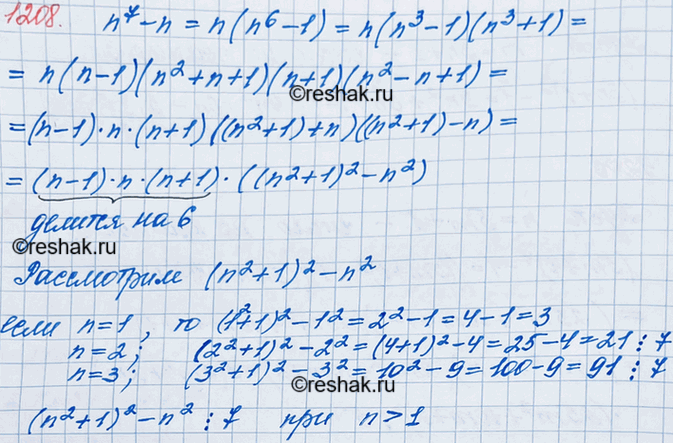 1208. n⁷-n = n(n⁶-1) = n(n³-1)(n³+1) =
= n(n-1)(n²+n+1)(n+1)(n²-n+1) =
©reshak.ru
= (n-1)·n·(n+1)((n²+1)+n)((n²+1)-n) =
= (n-1)·n·(n+1)·((n²+1)²-n²)
делится на 6
©reshak.ru
Рассмотрим (n²+1)²-n²
если n=1, то (1²+1)²-1²=2²-1=4-1=3
n=2; (2²+1)²-2²=(4+1)²-4=25-4=21⋮7
n=3; (3²+1)²-3²=10²-9=100-9=91⋮7
©reshak.ru
(n²+1)²-n²⋮7 при n>1